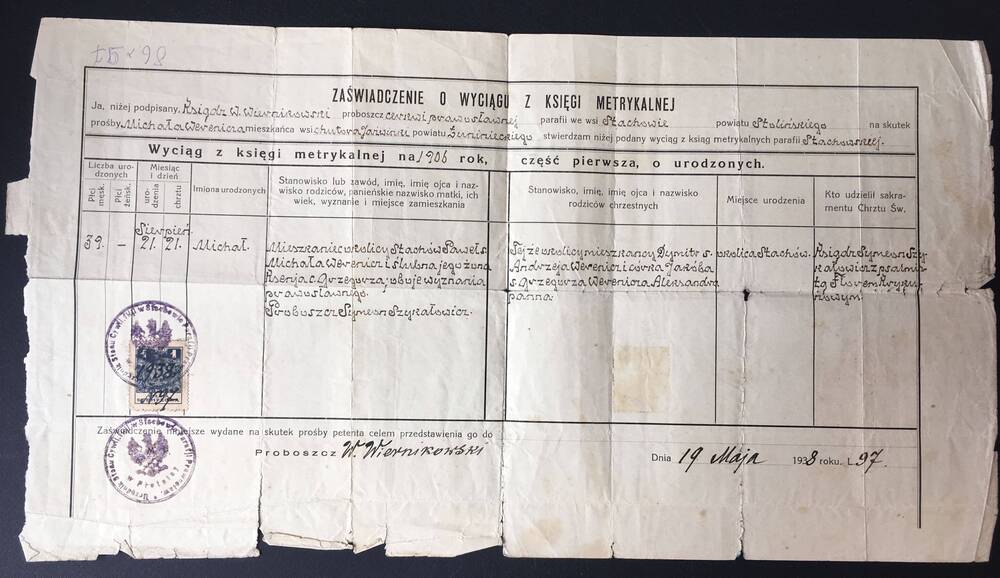 ZAŚWIADCZENIE O WYCIĄGU Z KSIĘGI METRYKALNEJ
Ja, niżej podpisany, Ksiądz W. Wiernikowski proboszcz cerkwi prawosławnej parafii we wsi Stachowie powiatu Stolińskiego na skutek
prośby Michała Werenicza mieszkańca wsi chutora powiatu Łuninieckiego stwierdzam niżej podany wyciąg z ksiąg metrykalnych parafii Stachowskiej.
Wyciąg z księgi metrykalnej na 1906 rok, część pierwsza, o urodzonych.
Liczba urodzonych
Płci męsk.
Płci żeńsk.
Miesiąc i dzień
urodzenia
chrztu
Imiona urodzonych
Stanowisko lub zawód, imię, imię ojca i nazwisko rodziców, panieńskie nazwisko matki, ich wiek, wyznanie i miejsce zamieszkania
Stanowisko, imię, imię ojca i nazwisko rodziców chrzestnych
Miejsce urodzenia
Kto udzielił sakramentu Chrztu Św.
Sierpień
39. — 21. 21. Michał.
Mieszkaniec okolicy Stachów Paweł s.
Michała Werenicz i ślubna jego żona
Ksenja c. Grzegorza, oboje wyznania
prawosławnego.
Proboszcz Symeon Szykałowicz.
Tejże okolicy mieszkańcy Dymitr s.
Andrzeja Werenicz i córka Jakóba
s. Grzegorza Werenicza Aleksandra
panna.
okolica Stachów.
Ksiądz Symeon Szy-
kałowicz z psalmis-
tą
1
1938
N. 97
Zaświadczenie niniejsze wydane na skutek prośby petenta celem przedstawienia go do
Proboszcz W. Wiernikowski
Dnia 19 Maja 1938 roku. L. 97.